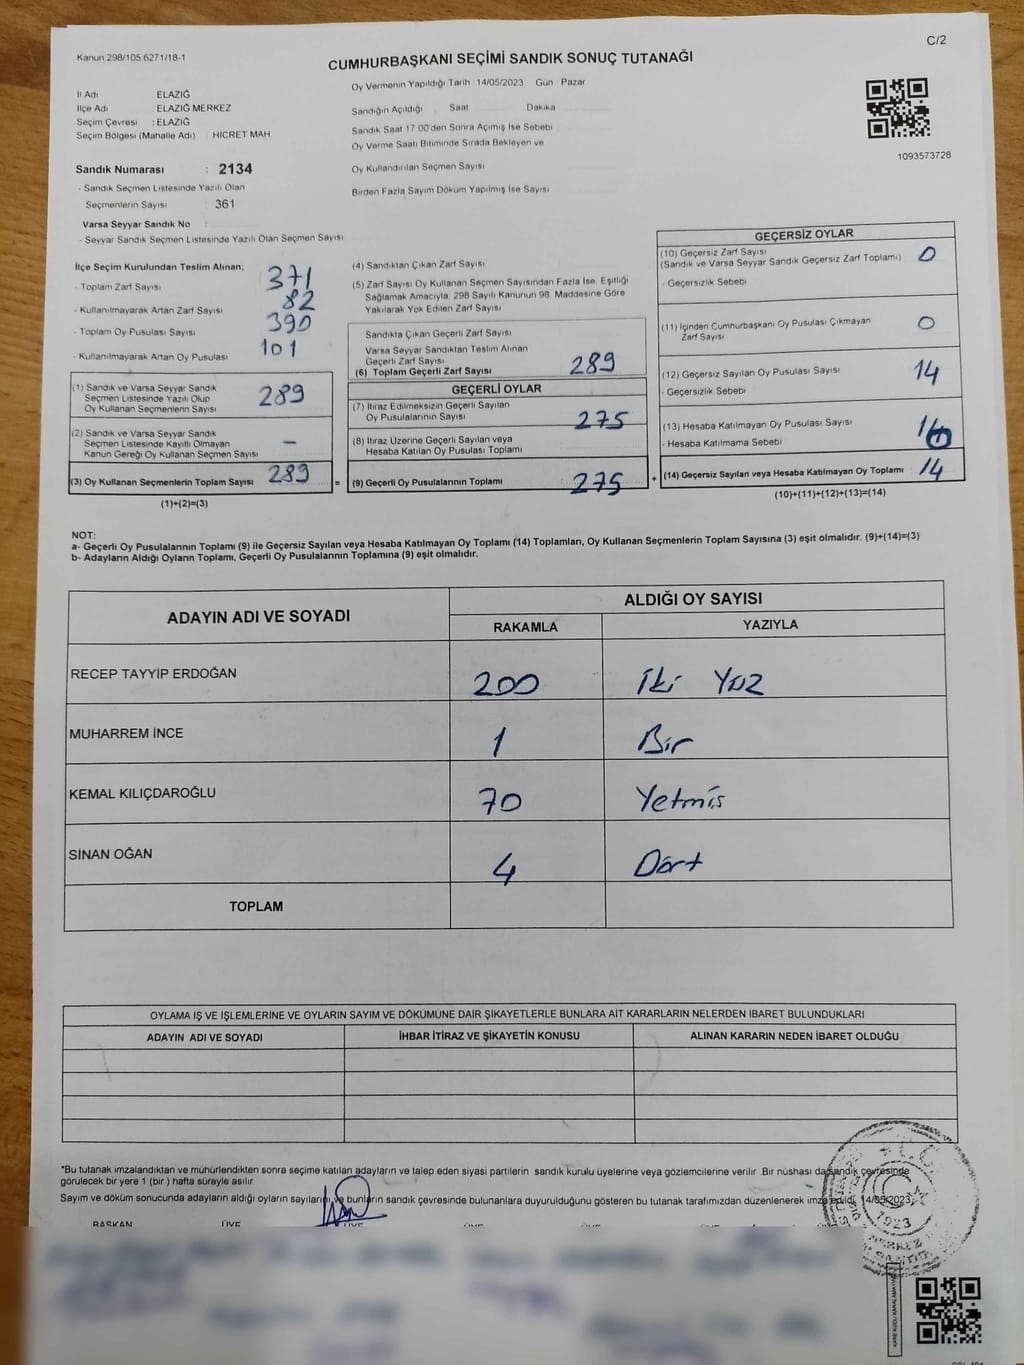 Kanun 298/105,6271/18-1
C/2
CUMHURBAŞKANI SEÇİMİ SANDIK SONUÇ TUTANAĞI
İl Adı ELAZIĞ
İlçe Adı ELAZIĞ MERKEZ
Seçim Çevresi : ELAZIĞ
Seçim Bölgesi (Mahalle Adı) HİCRET MAH
Sandık Numarası : 2134
- Sandık Seçmen Listesinde Yazılı Olan
Seçmenlerin Sayısı : 361
Varsa Seyyar Sandık No :
- Seyyar Sandık Seçmen Listesinde Yazılı Olan Seçmen Sayısı
Oy Vermenin Yapıldığı Tarih 14/05/2023 Gün Pazar
Sandığın Açıldığı Saat Dakika
Sandık Saat 17:00'den Sonra Açımış İse Sebebi
Oy Verme Saati Bitiminde Sırada Bekleyen ve
Oy Kullandırılan Seçmen Sayısı
Birden Fazla Sayım Döküm Yapılmış İse Sayısı
1093573728
İlçe Seçim Kurulundan Teslim Alınan;
- Toplam Zarf Sayısı 371
- Kullanılmayarak Artan Zarf Sayısı 82
- Toplam Oy Pusulası Sayısı 390
- Kullanılmayarak Artan Oy Pusulası 101
(1) Sandık ve Varsa Seyyar Sandık
Seçmen Listesinde Yazılı Olup
Oy Kullanan Seçmenlerin Sayısı 289
(2) Sandık ve Varsa Seyyar Sandık
Seçmen Listesinde Kayıtlı Olmayan
Kanun Gereği Oy Kullanan Seçmen Sayısı –
(3) Oy Kullanan Seçmenlerin Toplam Sayısı 289
(1)+(2)=(3)
=
(4) Sandıktan Çıkan Zarf Sayısı
(5) Zarf Sayısı Oy Kullanan Seçmen Sayısından Fazla İse, Eşitliği
Sağlamak Amacıyla, 298 Sayılı Kanunun 98. Maddesine Göre
Yakılarak Yok Edilen Zarf Sayısı
Sandıkta Çıkan Geçerli Zarf Sayısı
Varsa Seyyar Sandıktan Teslim Alınan
Geçerli Zarf Sayısı
(6) Toplam Geçerli Zarf Sayısı 289
GEÇERLİ OYLAR
(7) İtiraz Edilmeksizin Geçerli Sayılan
Oy Pusulalarının Sayısı 275
(8) İtiraz Üzerine Geçerli Sayılan veya
Hesaba Katılan Oy Pusulası Toplamı
(9) Geçerli Oy Pusulalarının Toplamı 275
+
GEÇERSİZ OYLAR
(10) Geçersiz Zarf Sayısı
(Sandık ve Varsa Seyyar Sandık Geçersiz Zarf Toplamı) 0
- Geçersizlik Sebebi
(11) İçinden Cumhurbaşkanı Oy Pusulası Çıkmayan
Zarf Sayısı 0
(12) Geçersiz Sayılan Oy Pusulası Sayısı 14
- Geçersizlik Sebebi
(13) Hesaba Katılmayan Oy Pusulası Sayısı
- Hesaba Katılmama Sebebi
(14) Geçersiz Sayılan veya Hesaba Katılmayan Oy Toplamı 14
(10)+(11)+(12)+(13)=(14)
NOT:
a- Geçerli Oy Pusulalarının Toplamı (9) ile Geçersiz Sayılan veya Hesaba Katılmayan Oy Toplamı (14) Toplamları, Oy Kullanan Seçmenlerin Toplam Sayısına (3) eşit olmalıdır. (9)+(14)=(3)
b- Adayların Aldığı Oyların Toplamı, Geçerli Oy Pusulalarının Toplamına (9) eşit olmalıdır.
ADAYIN ADI VE SOYADI ALDIĞI OY SAYISI
RAKAMLA YAZIYLA
RECEP TAYYİP ERDOĞAN 200 İki Yüz
MUHARREM İNCE 1 Bir
KEMAL KILIÇDAROĞLU 70 Yetmiş
SİNAN OĞAN 4 Dört
TOPLAM
OYLAMA İŞ VE İŞLEMLERİNE VE OYLARIN SAYIM VE DÖKÜMÜNE DAİR ŞİKAYETLERLE BUNLARA AİT KARARLARIN NELERDEN İBARET BULUNDUKLARI
ADAYIN ADI VE SOYADI İHBAR İTİRAZ VE ŞİKAYETİN KONUSU ALINAN KARARIN NEDEN İBARET OLDUĞU
*Bu tutanak imzalandıktan ve mühürlendikten sonra seçime katılan adayların ve talep eden siyasi partilerin sandık kurulu üyelerine veya gözlemcilerine verilir. Bir nüshası da sandık çevresinde
görülecek bir yere 1 (bir ) hafta süreyle asılır.
Sayım ve döküm sonucunda adayların aldığı oyların sayılarını ve bunların sandık çevresinde bulunanlara duyurulduğunu gösteren bu tutanak tarafımızdan düzenlenerek imza edildi. 14/05/2023
BAŞKAN ÜYE ÜYE ÜYE ÜYE ÜYE
T.C.
1923